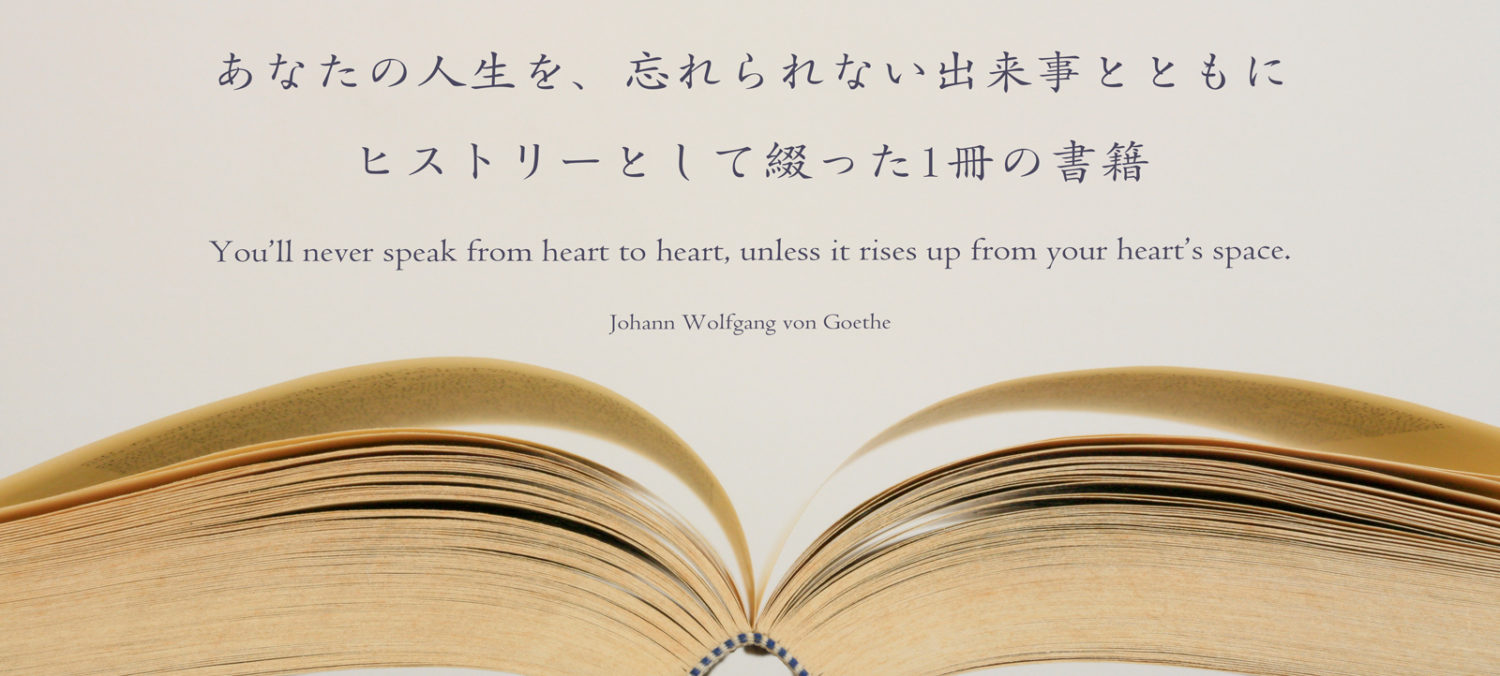 あなたの人生を、忘れられない出来事とともに
ヒストリーとして綴った1冊の書籍
You’ll never speak from heart to heart, unless it rises up from your heart’s space.
Johann Wolfgang von Goethe